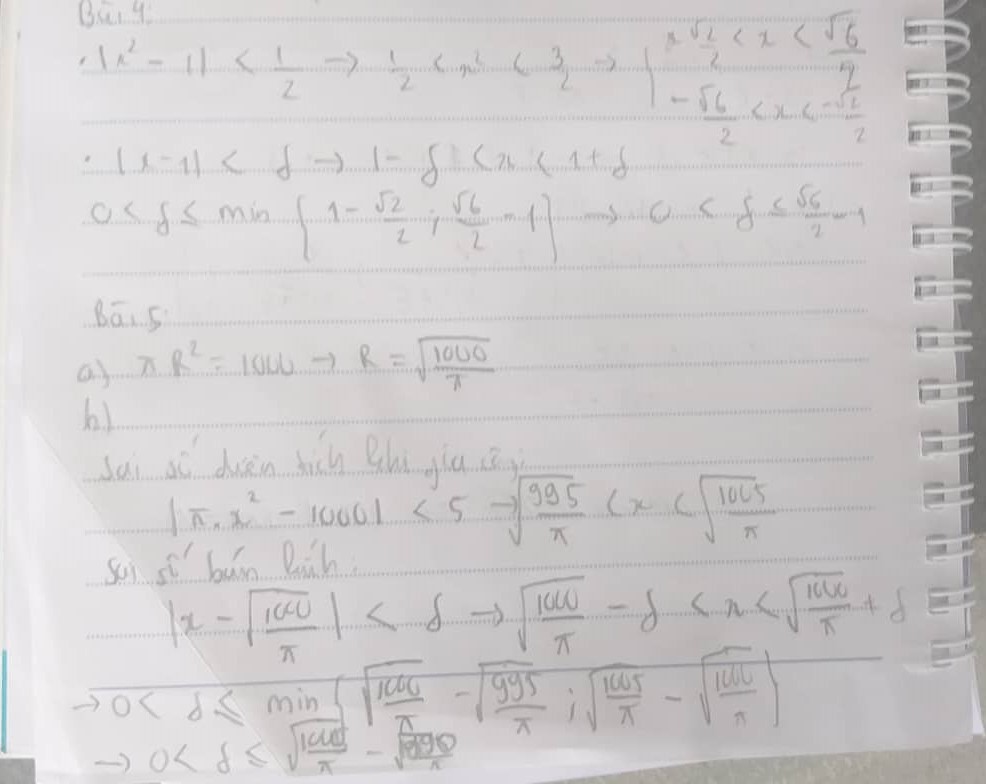 Bài 4:
• |x² - 1| < 1/2 → 1/2 < x² < 3/2 → { √2/2 < x < √6/2
-√6/2 < x < -√2/2
• |x-1| < δ → 1 - δ < x < 1 + δ
0 < δ ≤ min { 1 - √2/2 ; √6/2 - 1 } → 0 < δ ≤ √6/2 - 1
Bài 5
a) π R² = 1000 → R = √(1000/π)
b)
Sai số diện tích khi gia
|π.x² - 1000| < 5 → √(995/π) < x < √(1005/π)
Sai số bán kính:
|x - √(1000/π)| < δ → √(1000/π) - δ < x < √(1000/π) + δ
→ 0 < δ ≤ min { √(1000/π) - √(995/π) ; √(1005/π) - √(1000/π) }
→ 0 < δ ≤